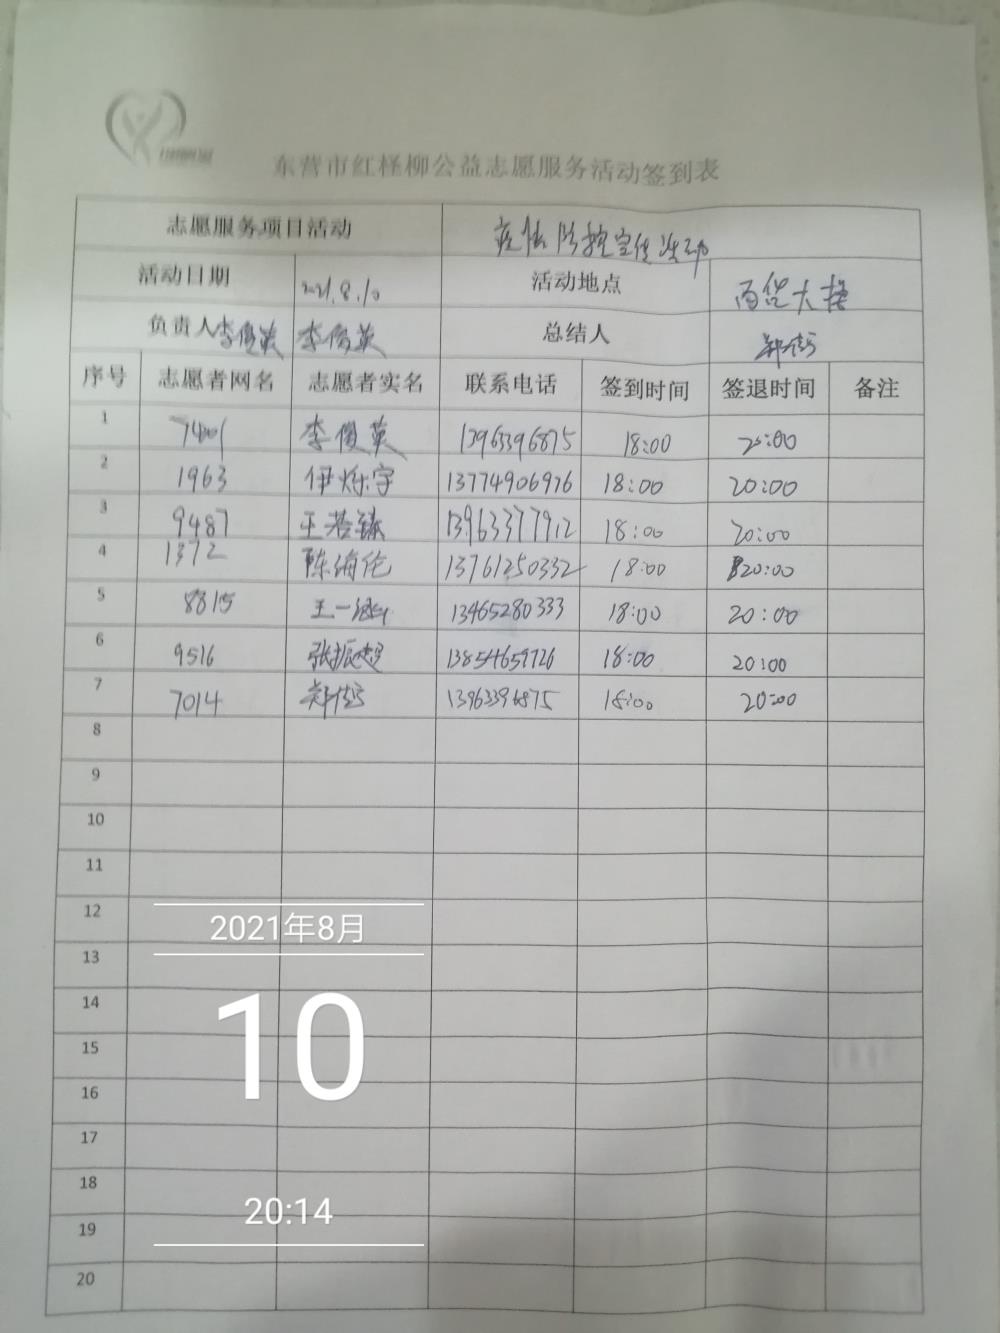 东营市红柽柳公益志愿服务活动签到表
志愿服务项目活动 疫情防控宣传活动
活动日期 2021.8.10 活动地点 百货大楼
负责人李俊英 李俊英 总结人
序号 志愿者网名 志愿者实名 联系电话 签到时间 签退时间 备注
1 7401 李俊英 13963396875 18:00 20:00
2 1963 伊烁宇 13774906976 18:00 20:00
3 9487 王若臻 13963377912 18:00 20:00
4 1372 陈海伦 13761250332 18:00 20:00
5 8815 王一涵 13465280333 18:00 20:00
6 9516 张振超 13854659726 18:00 20:00
7 7014 13963396875 18:00 20:00
8
9
10
11
12
2021年8月
13
14
10
15
16
17
18
20:14
19
20